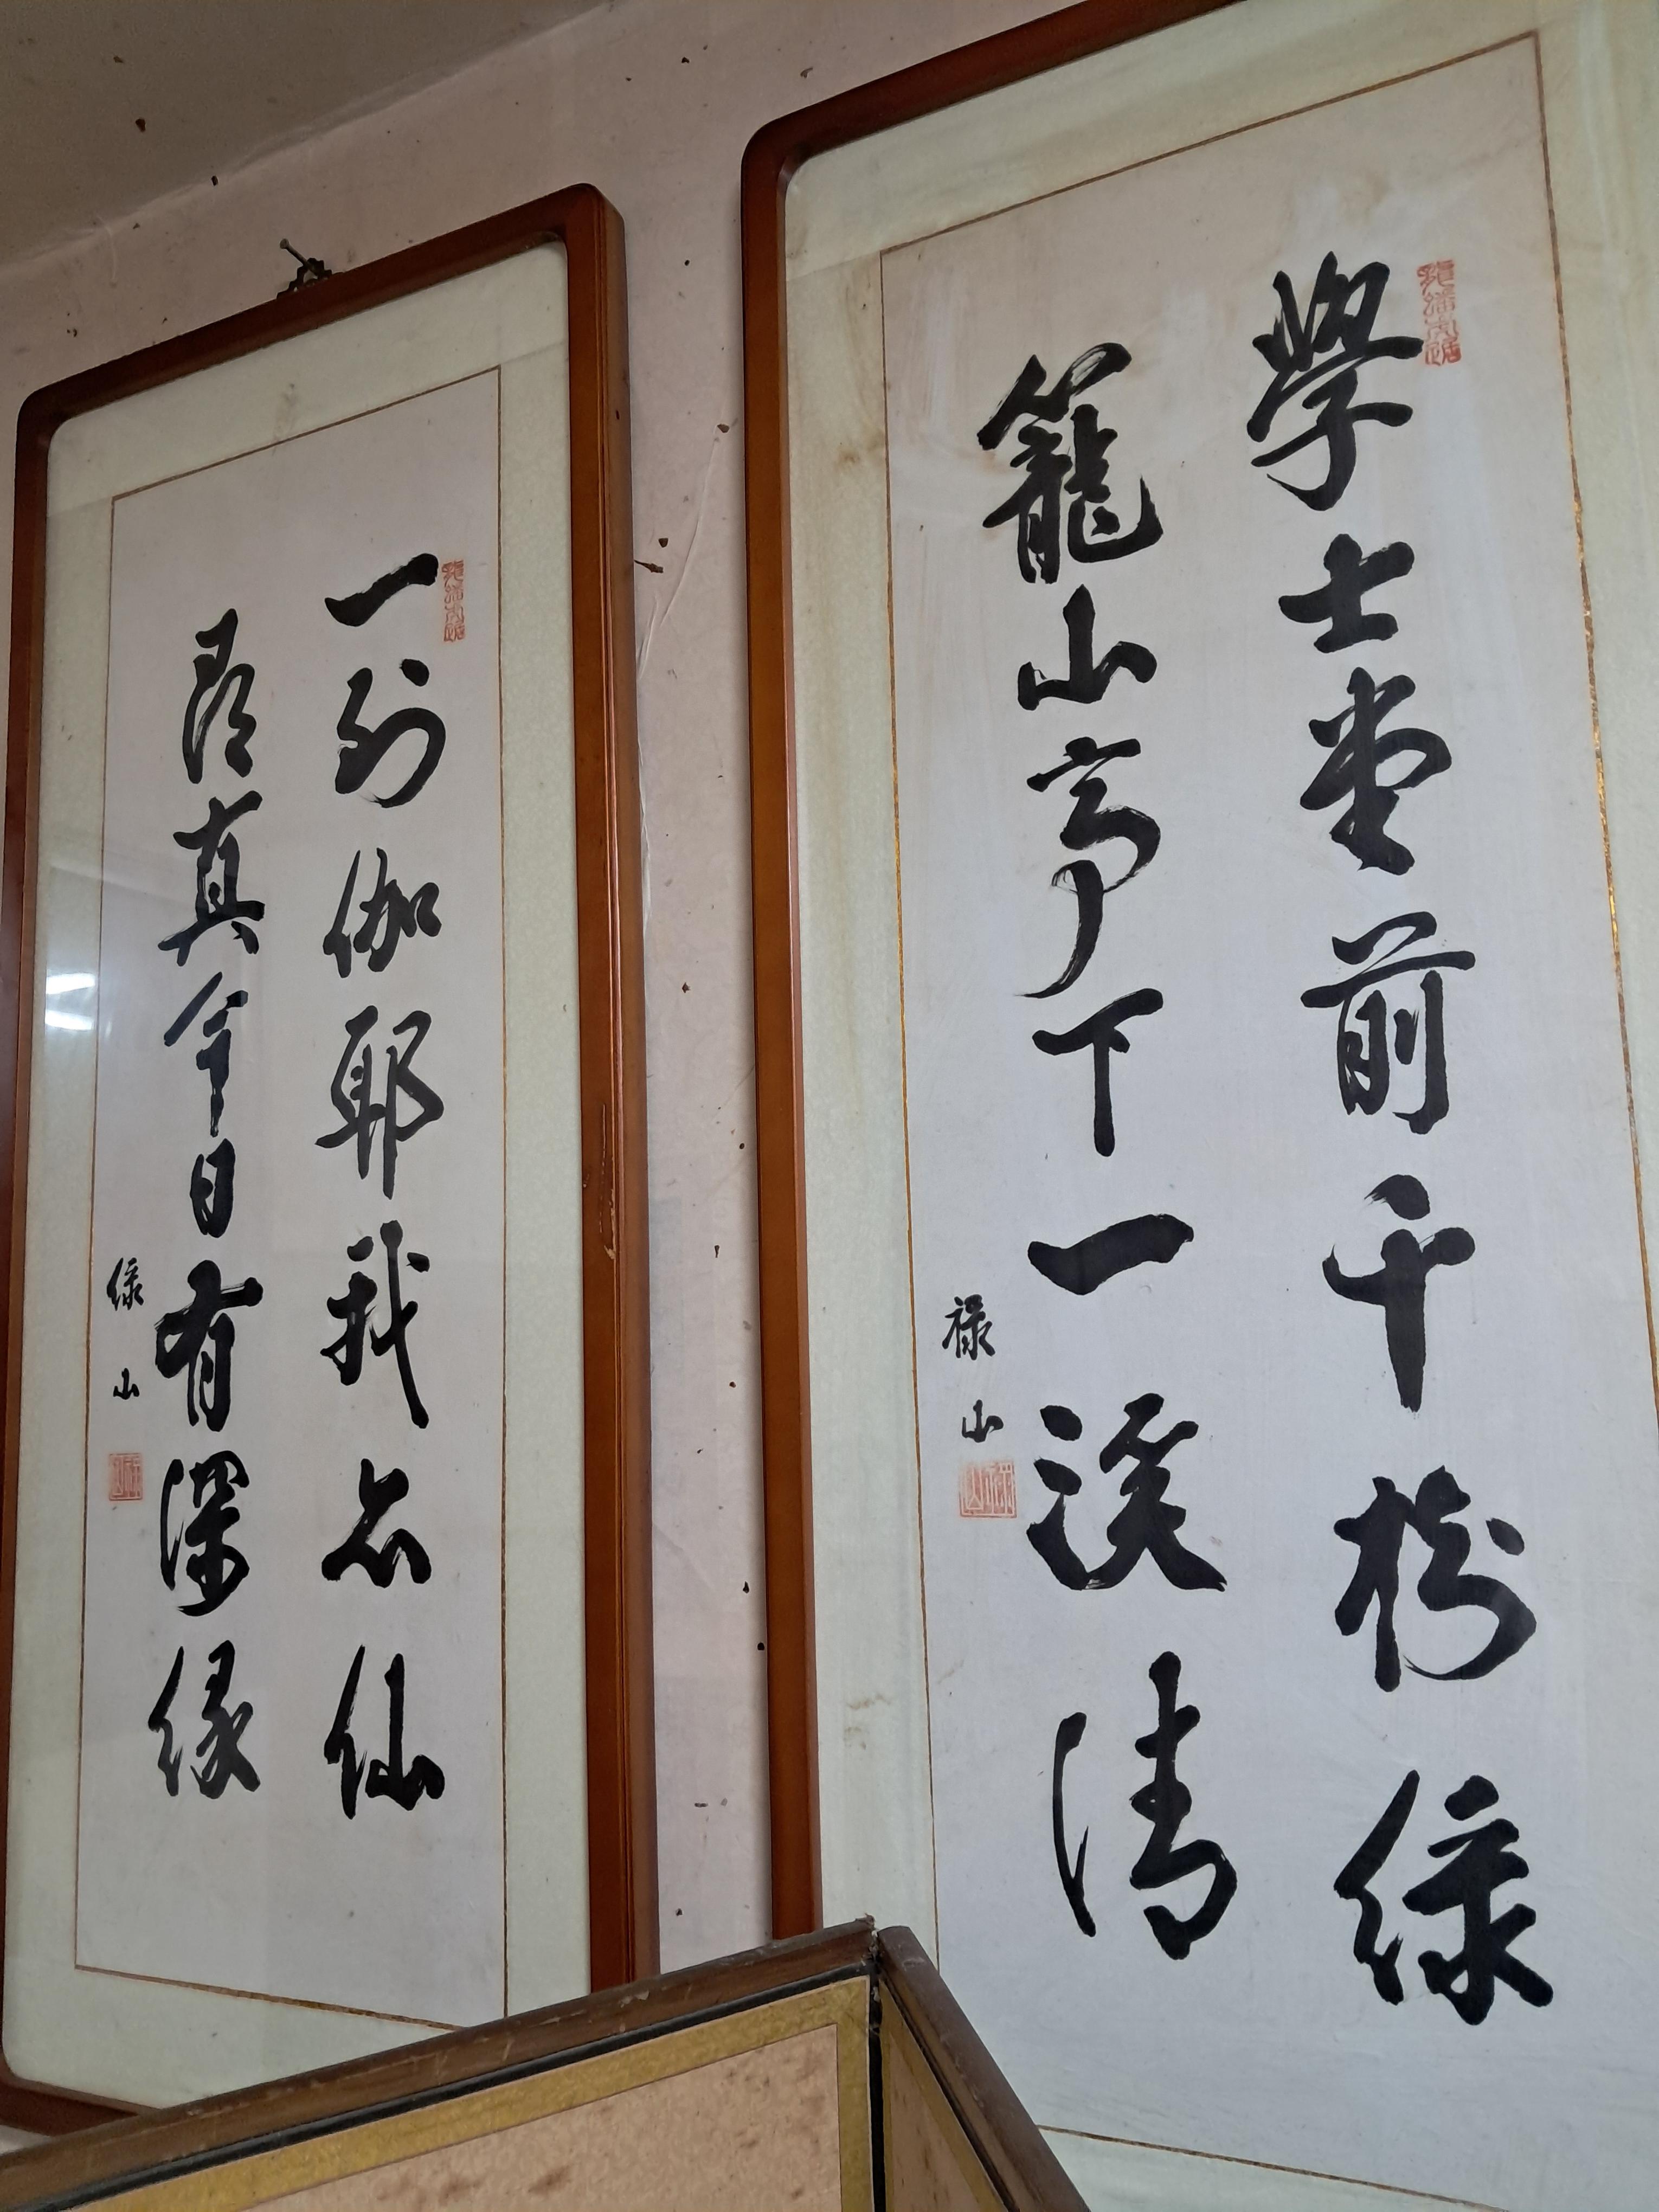 學士堂前千樹綠
籠山亭下一溪清
祿山
一到伽耶我亦仙
尋真今日有深緣
祿山